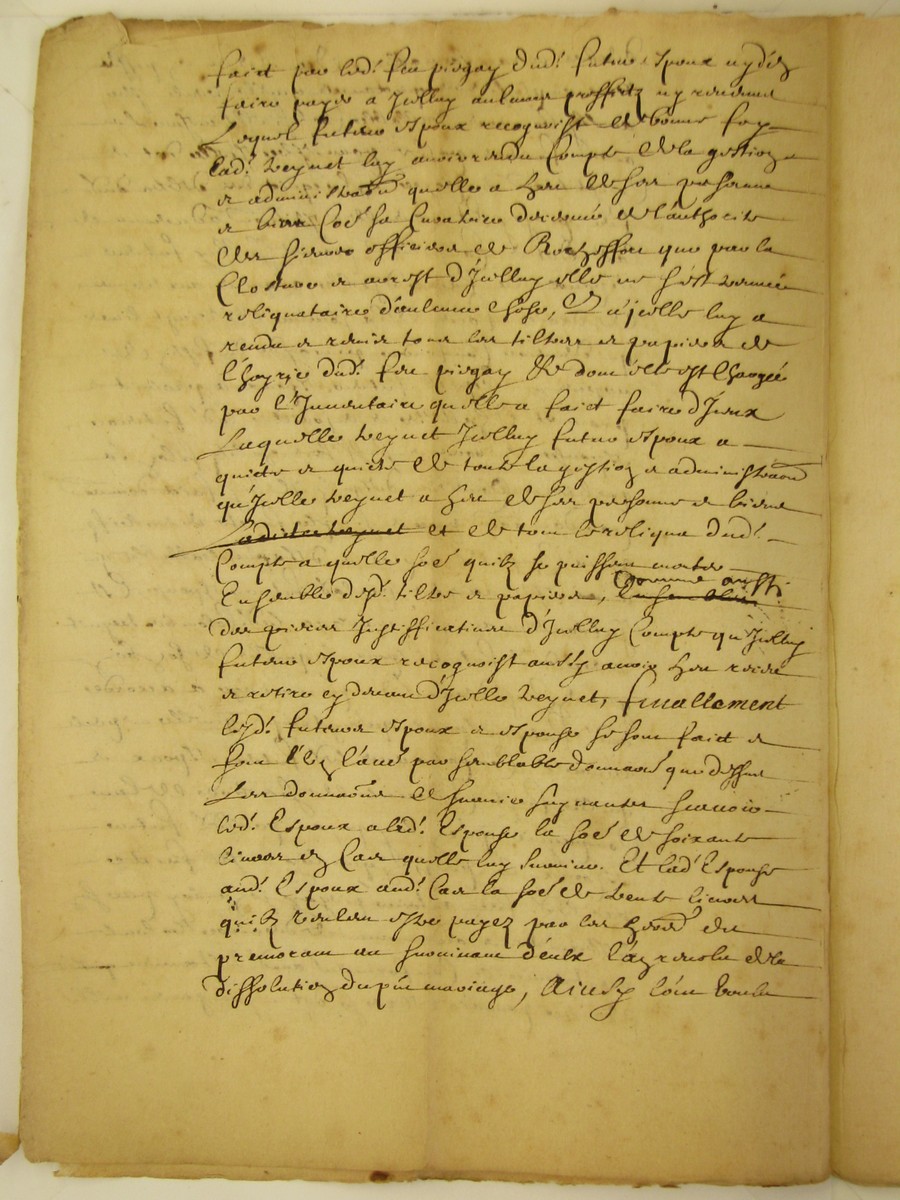 faict par led.t feu piegay dud.t futur espoux ny des
faire payer a Icelluy aulcuns proffitz ny revenus
Lequel futur espoux recognoist de bonne foy
Lad.t veynet luy avoir rendu Compte de la gestion
et administra.on quelle a heu de ses personne
et biens Co.e sa Curatrice decernée de l'authorité
des sieurs officiers de Rochefort que par la
Closture et arrest d'Icelluy elle ne s'est trouvée
reliquataire d'aulcune chose, Et qu'icelle luy a
rendu et remis tous les tiltres et papiers de
l'hoyrie dud.t feu piegay et dont elle est chargée
par l'Inventaire quelle a faict faire d'Iceux
Laquelle veynet Icelluy futur espoux a
quicté et quicte de toute la gestion et administra.on
qu'Icelle veynet a heu de ses personne et biens
Ladicte veynet et de tout le reliqua dud.t
Compte a quelle so.e quilz se puissent monter
Ensemble desd.t tiltres et papiers, comme aussi
Ensemble
des pieces Justifficatives d'Icelluy Compte qu'Icelluy
futur espoux recognoist aussy avoir heu receu
et retiré cy devant d'Icelle veynet, finallement
lesd.t futurs espoux et espouse se sont faict et
font par semblable dona.on que dessus
Les dona.ons de survie suyvantes scavoir
led.t Espoux a lad.t Espouse la so.e de soixante
livres en Cas quelle luy survive. Et lad.t Espouse
aud.t Espoux aud.t Cas la so.e de trente livres
quilz veulent estre payez par les du
premourant au survivant d'eulx de la
dissolution du p.nt mariage, Ainsy l'ont voulu